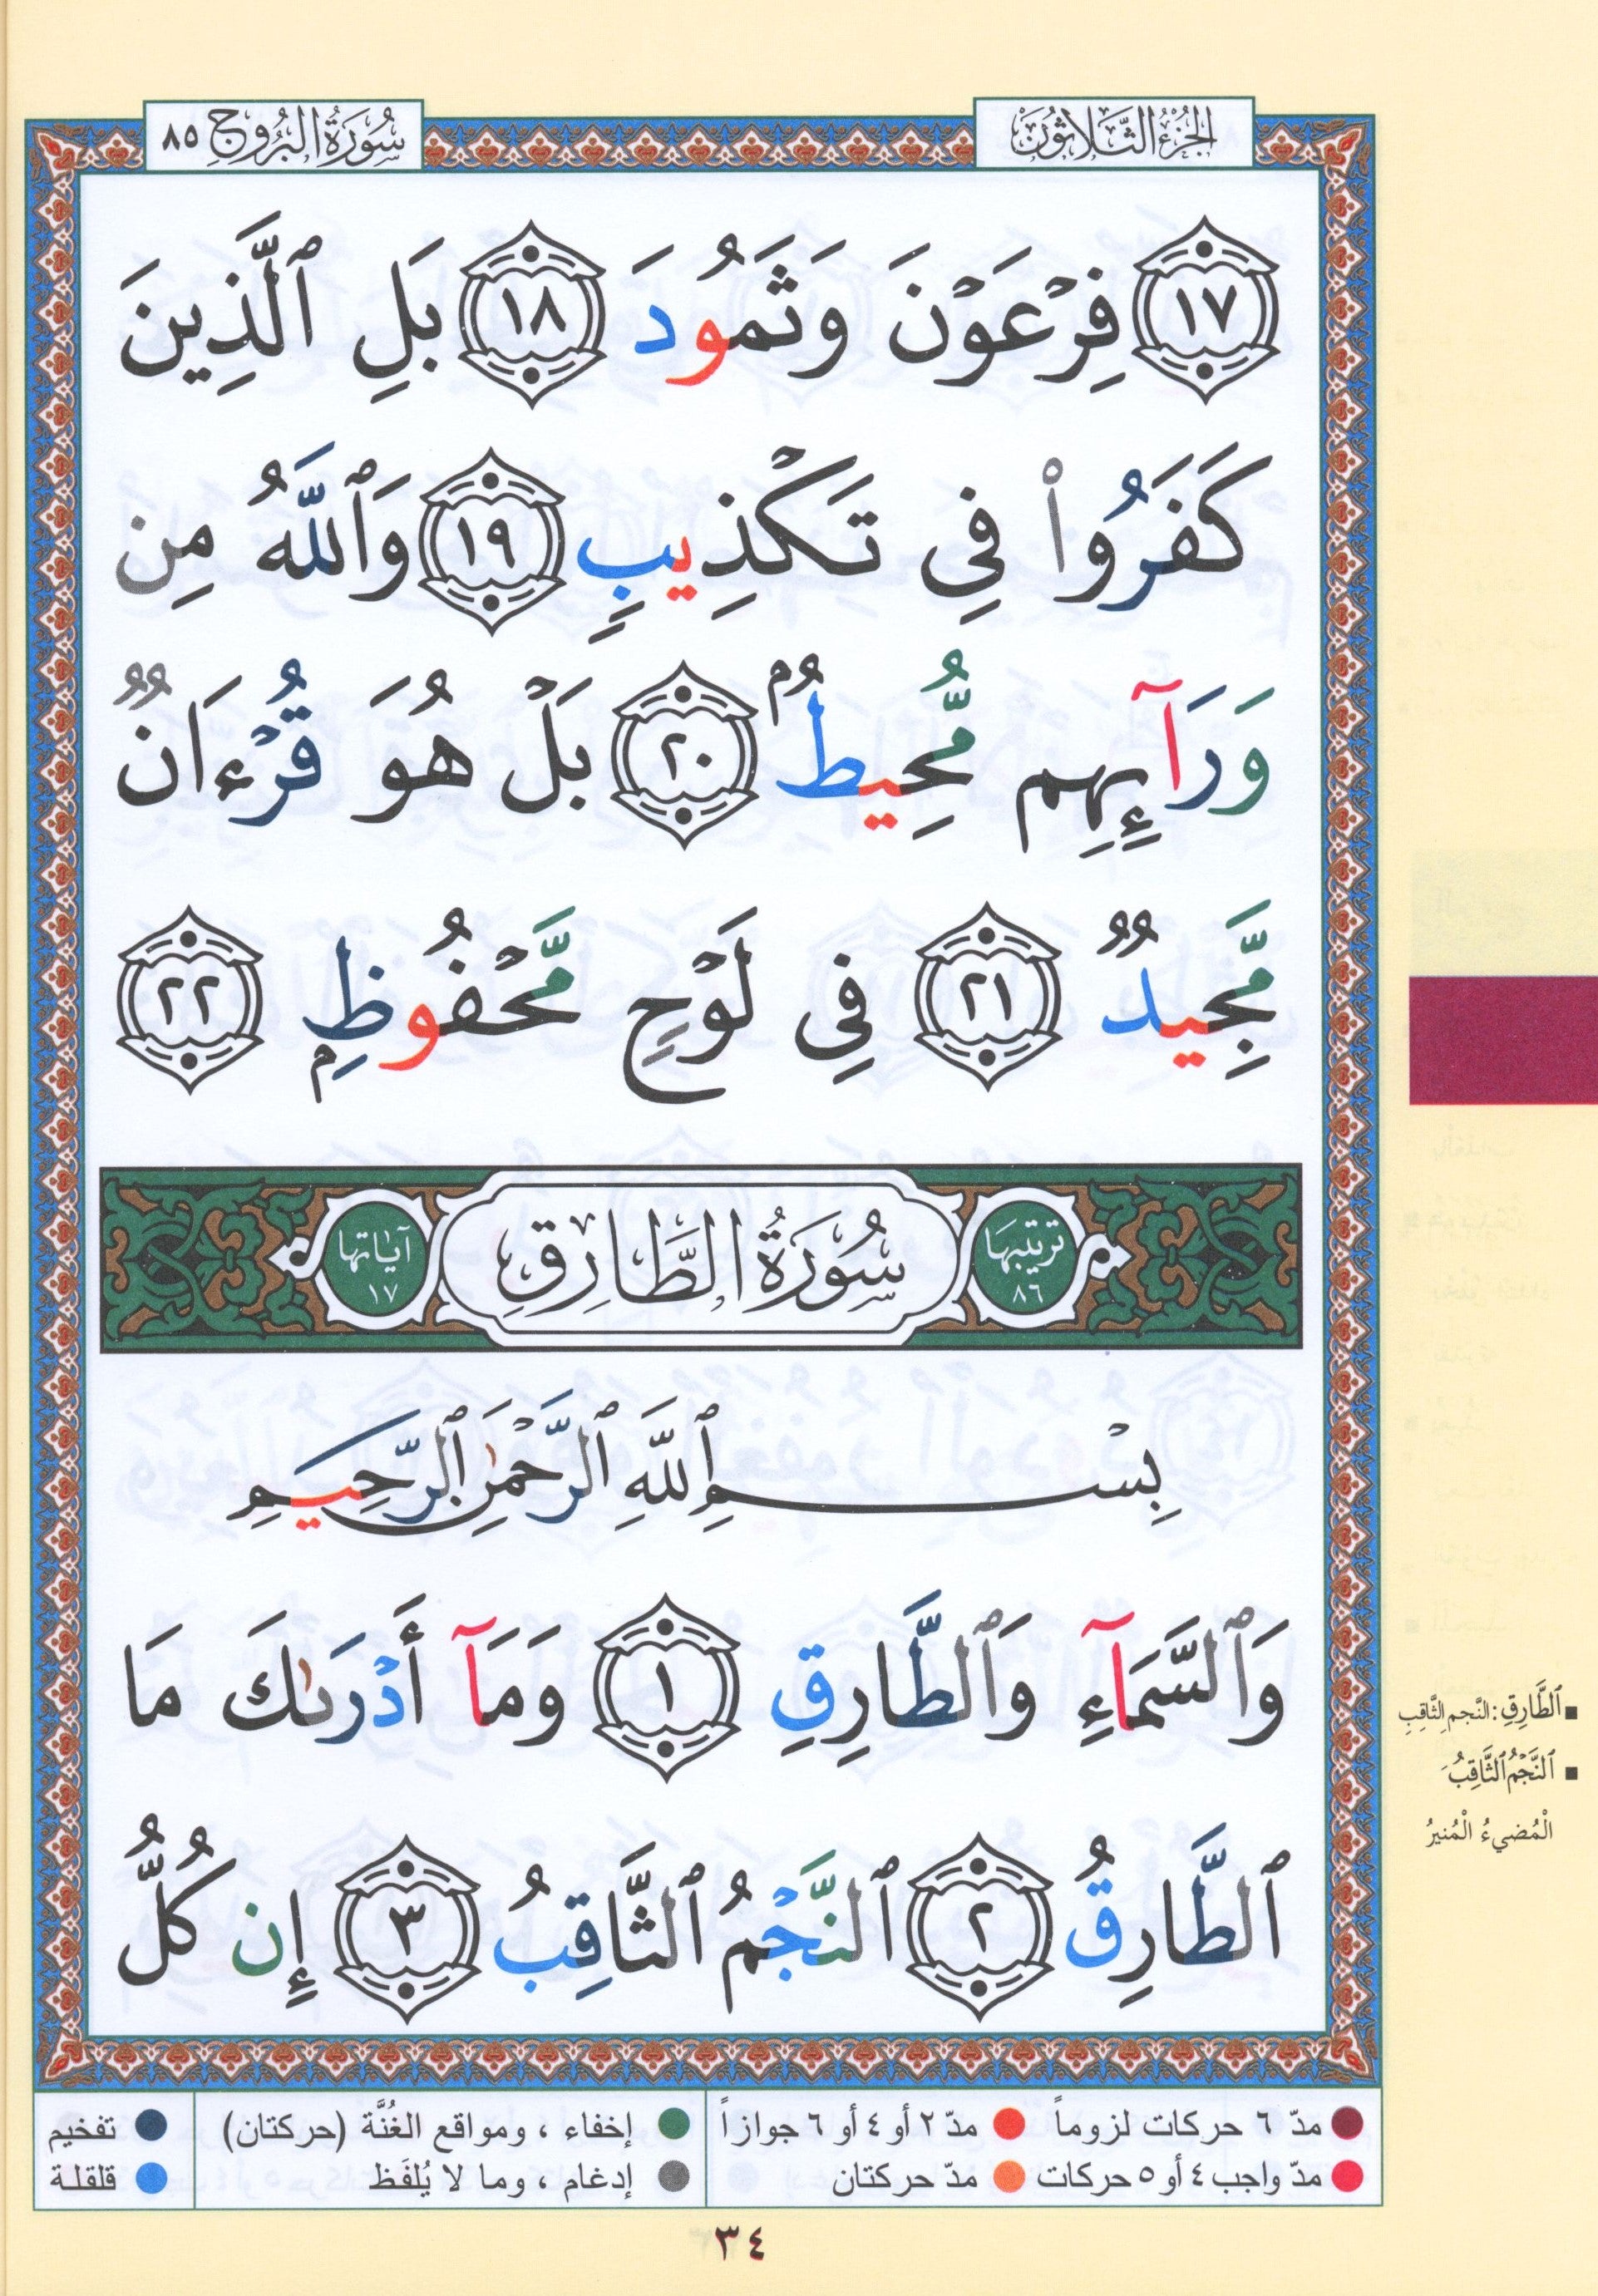 الجُزْءُ الثَّلَاثُونَ
سُورَةُ البُرُوجِ ٨٥
١٧ فِرْعَوْنَ وَثَمُودَ ١٨ بَلِ ٱلَّذِينَ
كَفَرُوا۟ فِى تَكْذِيبٍ ١٩ وَٱللَّهُ مِن
وَرَآئِهِم مُّحِيطٌۢ ٢٠ بَلْ هُوَ قُرْءَانٌ
مَّجِيدٌ ٢١ فِى لَوْحٍ مَّحْفُوظٍۭ ٢٢
تَرتيبهَا
٨٦
سُورَةُ الطَّارِقِ
آيَاتهَا
١٧
بِسْمِ ٱللَّهِ ٱلرَّحْمَٰنِ ٱلرَّحِيمِ
وَٱلسَّمَآءِ وَٱلطَّارِقِ ١ وَمَآ أَدْرَىٰكَ مَا
ٱلطَّارِقُ ٢ ٱلنَّجْمُ ٱلثَّاقِبُ ٣ إِن كُلُّ
■ ٱلطَّارِقِ: النَّجمِ الثَّاقِبِ
■ ٱلنَّجْمُ ٱلثَّاقِبُ
الْمُضيءُ الْمُنيرُ
مدّ ٦ حركات لزوماً ● مدّ ٢ أو ٤ أو ٦ جوازاً ● إخفاء ، ومواقع الغُنَّة (حركتان) ● تفخيم
مدّ واجب ٤ أو ٥ حركات ● مدّ حركتان ● إدغام ، وما لا يُلفَظ ● قلقلة
٣٤